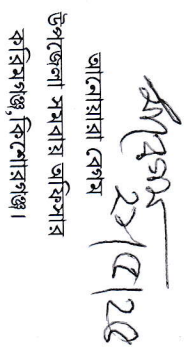 ২১/৫/২৫
আনোয়ারা বেগম
উপজেলা সমবায় অফিসার
করিমগঞ্জ, কিশোরগঞ্জ।